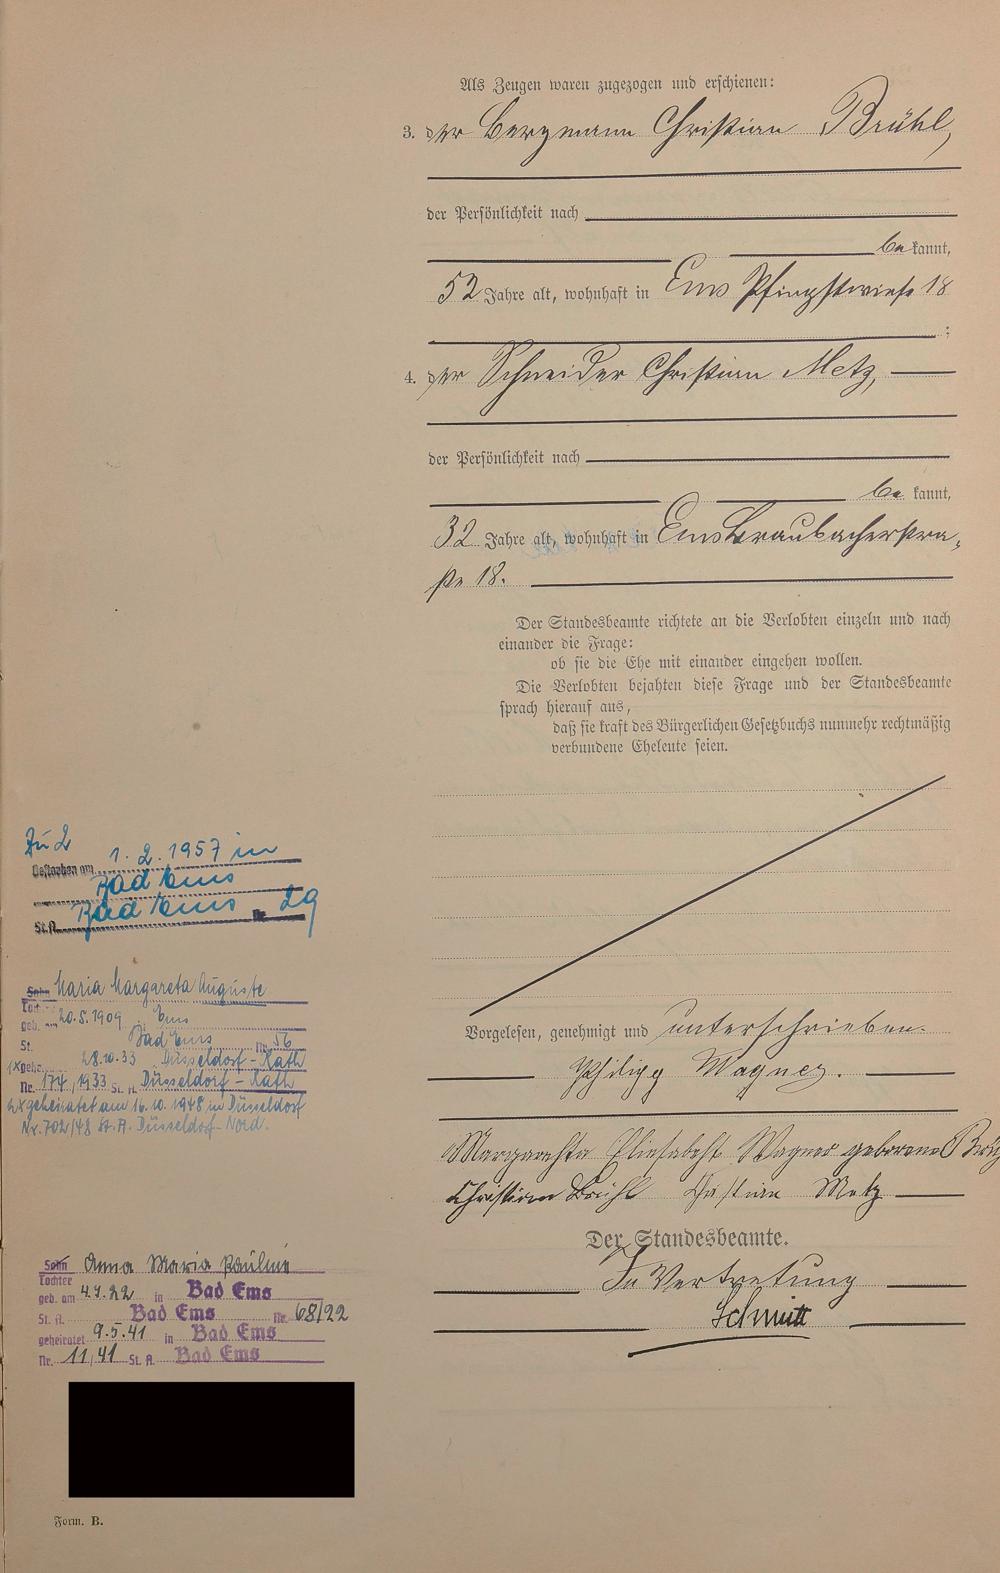 Als Zeugen waren zugezogen und erschienen:
3. der Bergmann Christian Brühl,
der Persönlichkeit nach
be kannt,
52 Jahre alt, wohnhaft in Ems Pfingstwiese 18
;
4. der Schneider Christian Metz,
der Persönlichkeit nach
be kannt,
32 Jahre alt, wohnhaft in Ems Braubacherstra-
ße 18.
Der Standesbeamte richtete an die Verlobten einzeln und nach
einander die Frage:
ob sie die Ehe mit einander eingehen wollen.
Die Verlobten bejahten diese Frage und der Standesbeamte
sprach hierauf aus,
daß sie kraft des Bürgerlichen Gesetzbuchs nunmehr rechtmäßig
verbundene Eheleute seien.
Vorgelesen, genehmigt und unterschrieben.
Philipp Wagner.
Margaretha Eliesabeht Wagner geborene Brühl
Christian Brühl Christian Metz
Der Standesbeamte.
In Vertretung
Schmitt
Zu 2
Gestorben am 1.2.1957 in
Bad Ems
St.A. Bad Ems Nr. 29
Sohn Maria Margareta Auguste
Tochter
geb. am 20.5.1909 i. Ems
St. Bad Ems Nr. 56
1x gehe. 28.10.33 Düsseldorf-Rath
Nr. 174/1933 St. A. Düsseldorf-Rath
2x geheiratet am 16.10.1948 in Düsseldorf
Nr. 702/48 St.A. Düsseldorf-Nord.
Sohn Anna Maria Pauline
Tochter
geb. am 4.4.22 in Bad Ems
St. A. Bad Ems Nr. 68/22
geheiratet 9.5.41 in Bad Ems
Nr. 11/41 St. A. Bad Ems
Form. B.